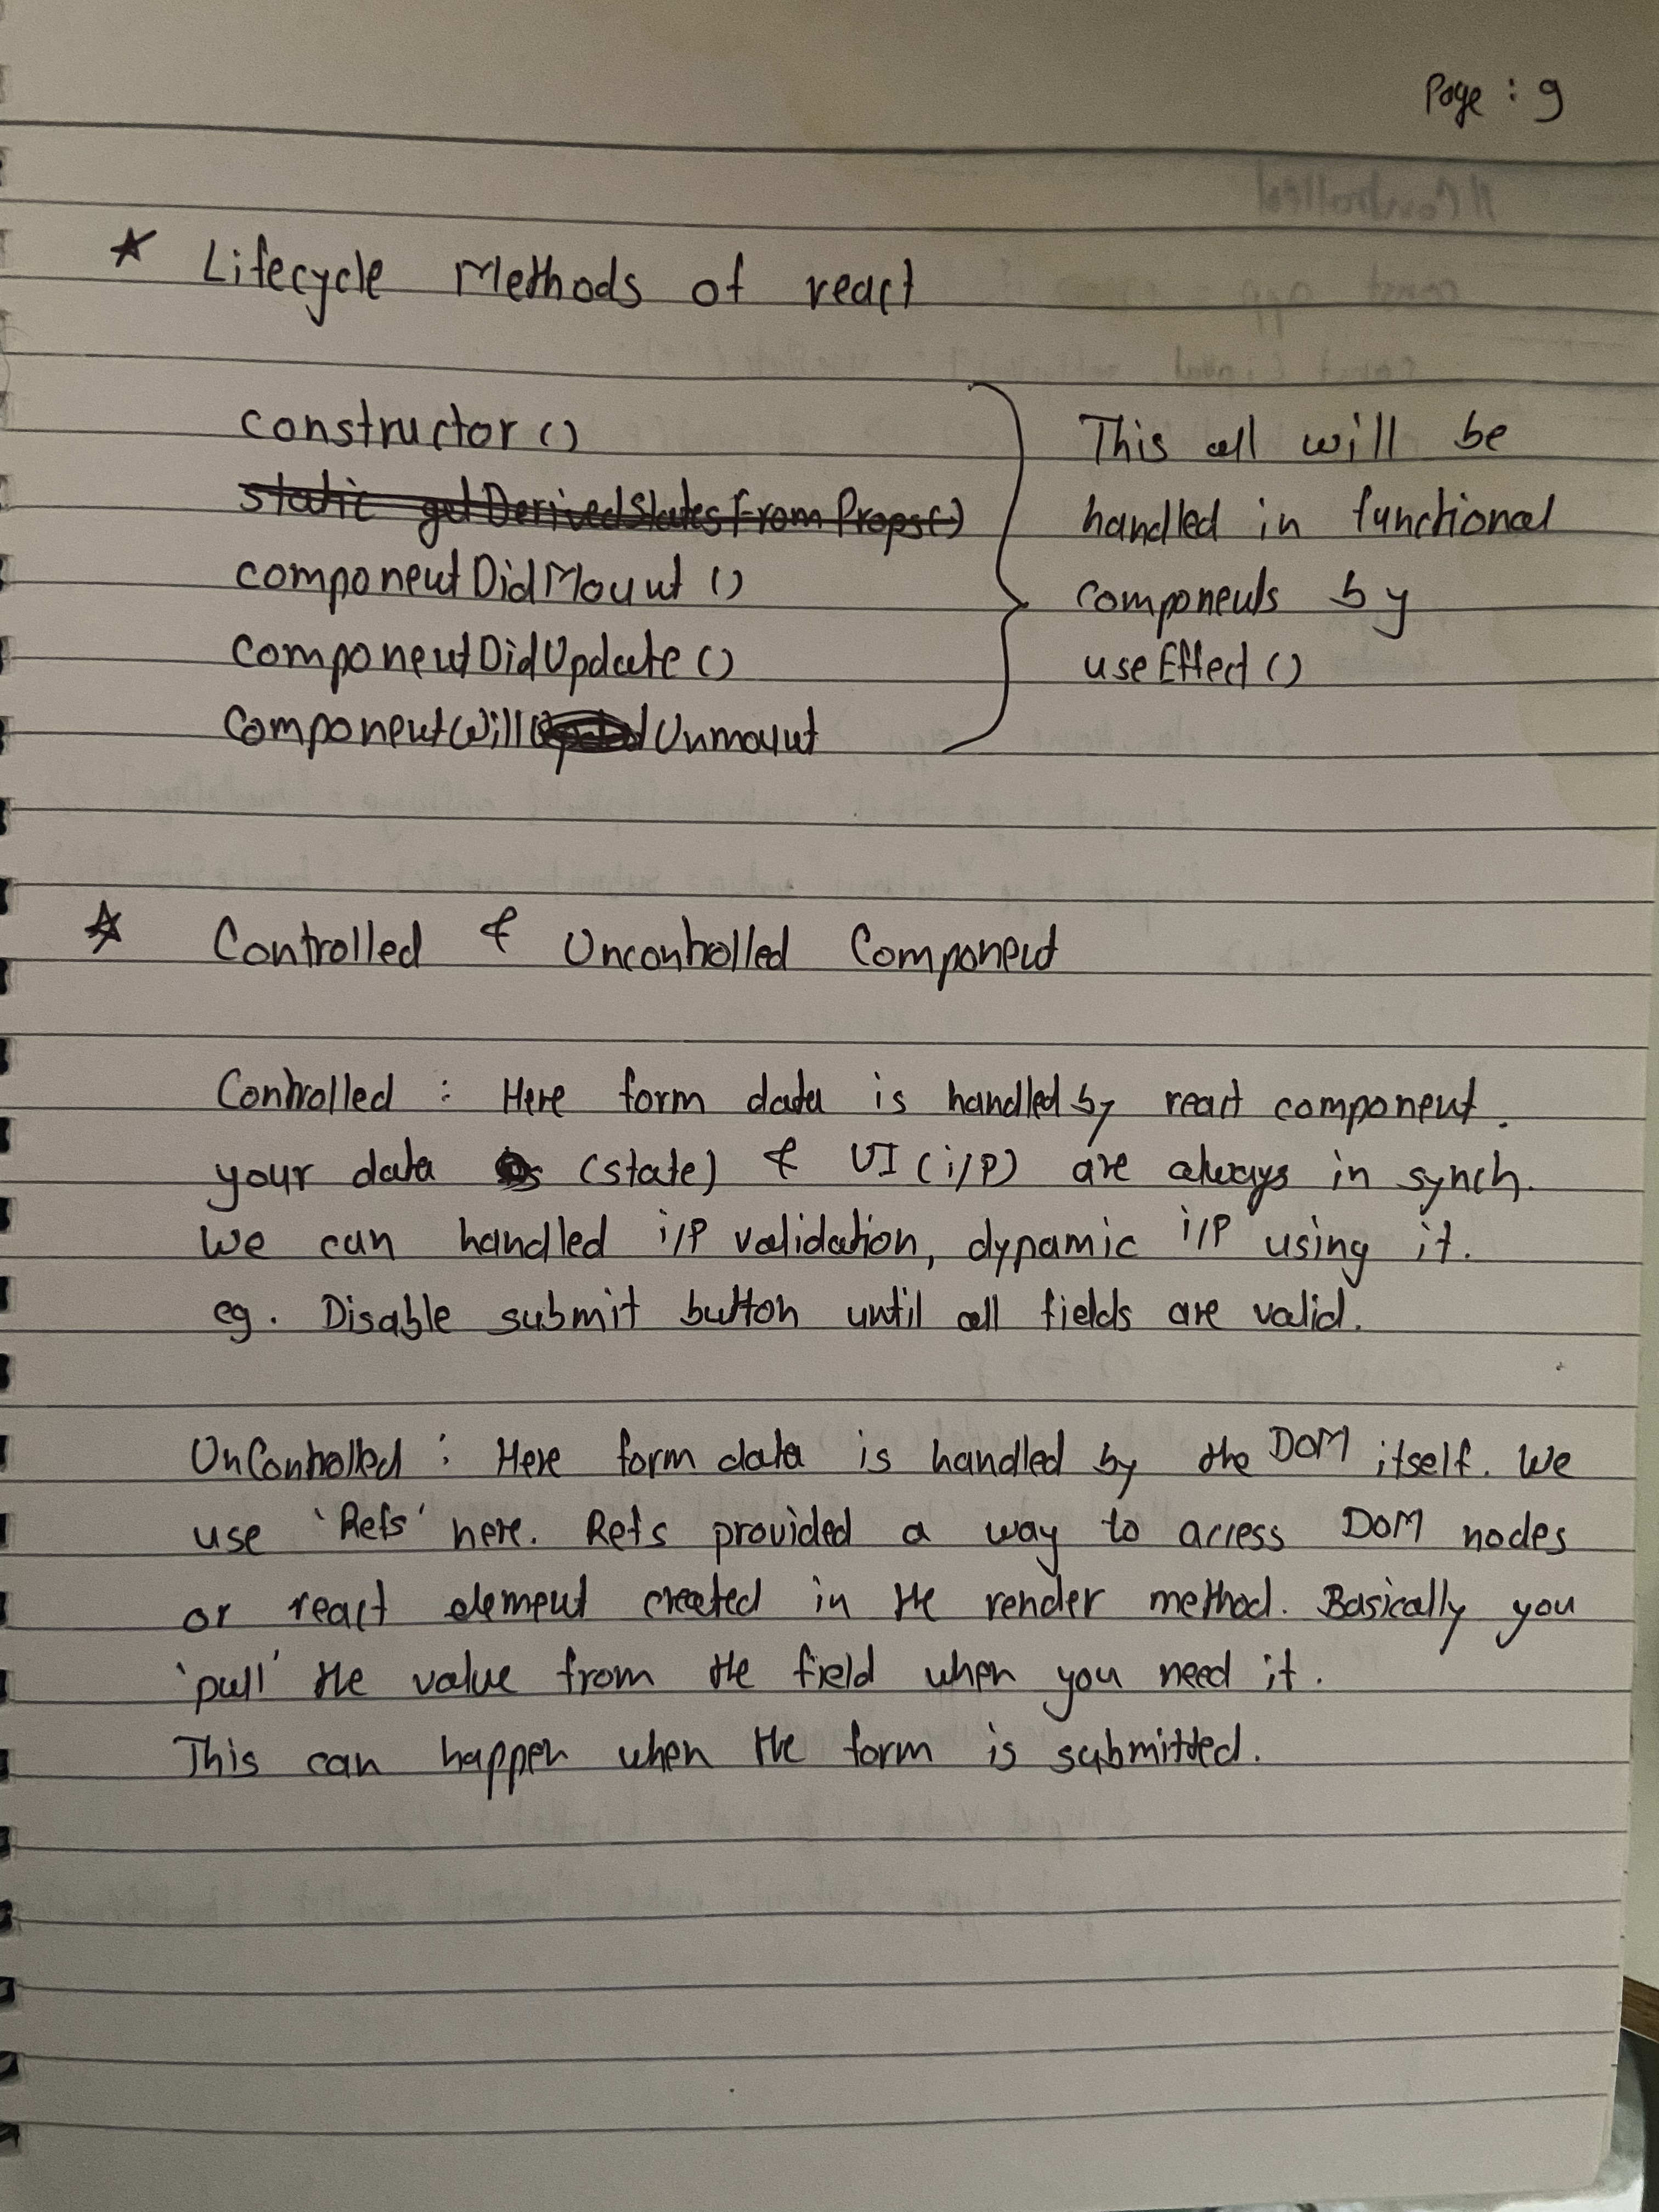 Page : 9
* Lifecycle Methods of react
constructor () This all will be
static getDerivedStatesFromProps() handled in functional
componentDidMount () components by
componentDidUpdate () useEffect ()
ComponentWill Unmount
* Controlled & Uncontrolled Component
Controlled : Here form data is handled by react component.
your data (state) & UI (i/p) are always in synch.
We can handled i/p validation, dynamic i/p using it.
eg. Disable submit button until all fields are valid.
UnControlled : Here form data is handled by the DOM itself. We
use 'Refs' here. Refs provided a way to access DOM nodes
or react element created in the render method. Basically you
'pull' the value from the field when you need it.
This can happen when the form is submitted.